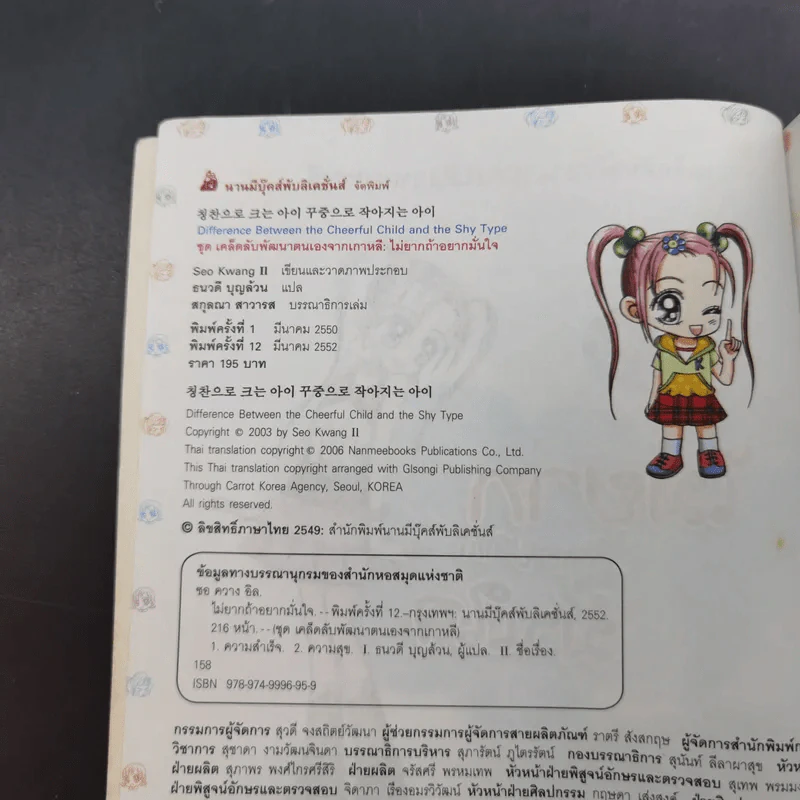 นานมีบุ๊คส์พับลิเคชั่นส์ จัดพิมพ์
칭찬으로 크는 아이 꾸중으로 작아지는 아이
Difference Between the Cheerful Child and the Shy Type
ชุด เคล็ดลับพัฒนาตนเองจากเกาหลี: ไม่ยากถ้าอยากมั่นใจ
Seo Kwang II เขียนและวาดภาพประกอบ
ธนวดี บุญล้วน แปล
สกุลณา สาวารส บรรณาธิการเล่ม
พิมพ์ครั้งที่ 1 มีนาคม 2550
พิมพ์ครั้งที่ 12 มีนาคม 2552
ราคา 195 บาท
칭찬으로 크는 아이 꾸중으로 작아지는 아이
Difference Between the Cheerful Child and the Shy Type
Copyright © 2003 by Seo Kwang II
Thai translation copyright © 2006 Nanmeebooks Publications Co., Ltd.
This Thai translation copyright arranged with Glsongi Publishing Company
Through Carrot Korea Agency, Seoul, KOREA
All rights reserved.
© ลิขสิทธิ์ภาษาไทย 2549: สำนักพิมพ์นานมีบุ๊คส์พับลิเคชั่นส์
ข้อมูลทางบรรณานุกรมของสำนักหอสมุดแห่งชาติ
ซอ ควาง อิล.
ไม่ยากถ้าอยากมั่นใจ.--พิมพ์ครั้งที่ 12.--กรุงเทพฯ: นานมีบุ๊คส์พับลิเคชั่นส์, 2552.
216 หน้า.--(ชุด เคล็ดลับพัฒนาตนเองจากเกาหลี)
1. ความสำเร็จ. 2. ความสุข. I. ธนวดี บุญล้วน, ผู้แปล. II. ชื่อเรื่อง.
158
ISBN 978-974-9996-95-9
กรรมการผู้จัดการ สุวดี จงสถิตย์วัฒนา ผู้ช่วยกรรมการผู้จัดการสายผลิตภัณฑ์ ราตรี สังสกฤษ ผู้จัดการสำนักพิมพ์
วิชาการ สุชาดา งามวัฒนจินดา บรรณาธิการบริหาร สุภารัตน์ ภูไตรรัตน์ กองบรรณาธิการ สุนันท์ ลีลาผาสุข
ฝ่ายผลิต สุภาพร พงศ์ไกรศรีสิริ ฝ่ายผลิต จรัสศรี พรหมเทพ หัวหน้าฝ่ายพิสูจน์อักษรและตรวจสอบ สุเทพ
ฝ่ายพิสูจน์อักษรและตรวจสอบ จิดาภา เรืองอมรวิวัฒน์ หัวหน้าฝ่ายศิลปกรรม กฤษดา